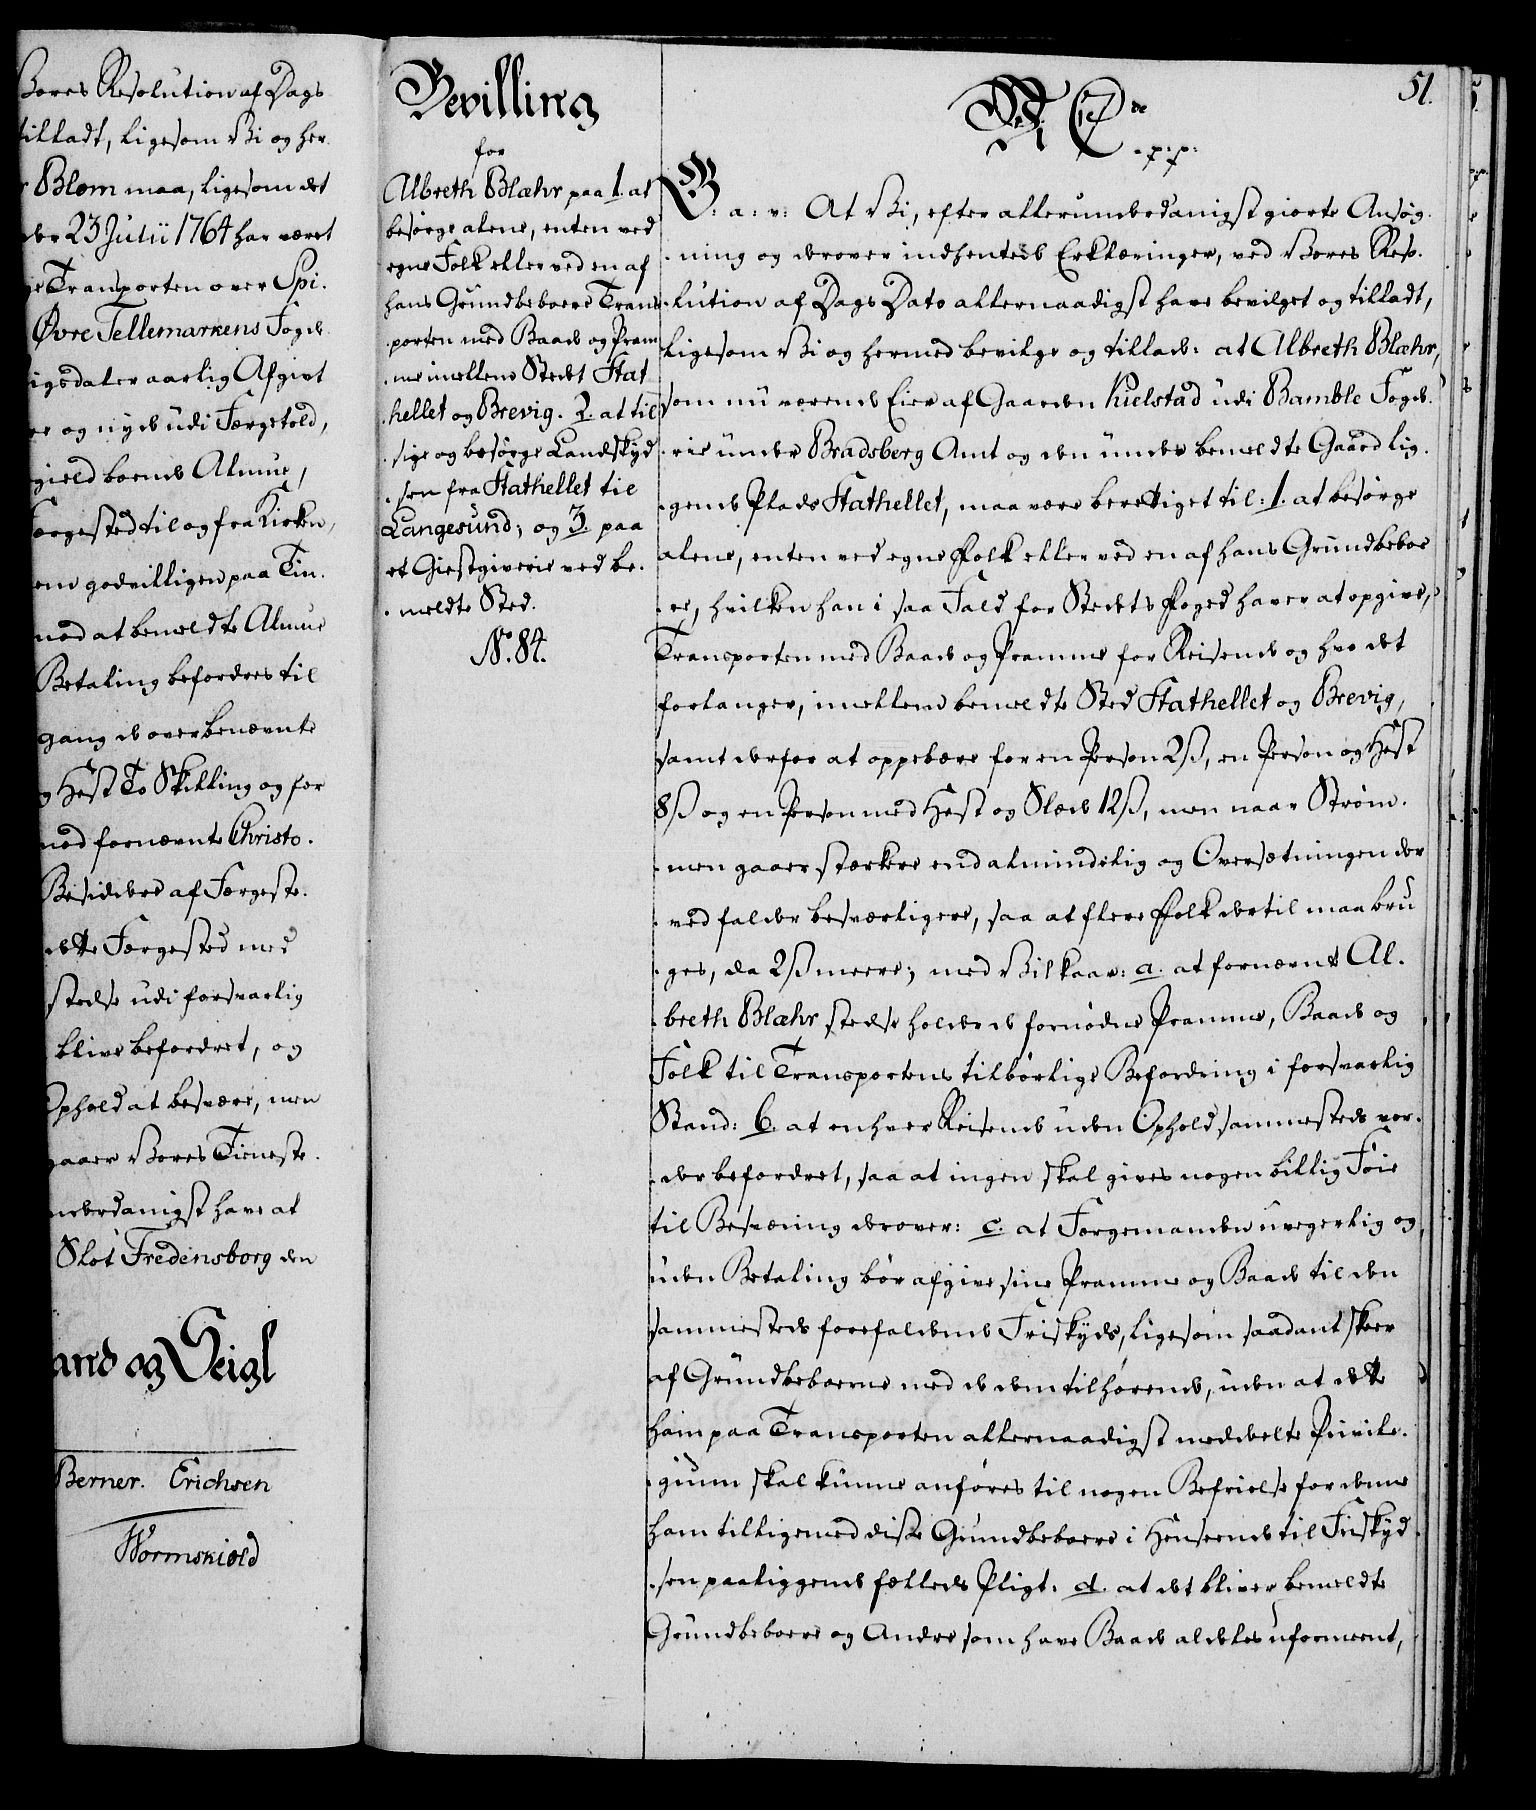 Vores Resolution af Dags
tilladt, ligesom Vi og her-
Blom maa, ligesom det
der 23 Julii 1764 har været
ge Transporten over Spi-
Øvre Tellemarkens Fogd-
igsdaler aarlig Afgivt
re og nyde udi Færgetold,
gield boende Almue,
ærgested til og fra Kirken,
em godvilligen paa Tin-
mod at bemeldte Almue
Betaling befordres til
gang de over benævnte
g Hest To Skilling og for
mod fornævnte Christo-
Besiddere af Færgeste-
dette Færgested med
stedse udi forsvarlig
blive befordret, og
Ophold at besvære, men
gaaer Vores Tieneste-
underdanigst have at
Slot Fredensborg den
and og Seigl
Berner. Erichsen
Wormskiold
Bevilling
for
Albreth Blæhr paa 1. at
besørge alene, enten ved
egne Folk eller ved en af
hans Grundbeboere Trans-
porten med Baade og Pram-
me imellem Stedet Stat-
hellet og Brevig. 2. at til-
sige og besørge Landskyd-
sen fra Stathellet til
Langesund; og 3. paa
et Giestgiverie ved be-
meldte Sted.
No. 84.
51.
p: p:
G: a: v: At Vi, efter allerunderdanigst giorte Ansøg-
ning og derover indhentede Erklæringer, ved Vores Reso-
lution af Dags Dato allernaadigst have bevilget og tilladt,
ligesom Vi og hermed bevilge og tillade: at Albreth Blæhr,
som nu værende Eier af Gaarden Kielstad udi Bamble Fogde-
rie under Bradsberg Amt og den under bemeldte Gaard lig-
gende Plads Stathellet, maa være berettiget til: 1. at besørge
alene, enten ved egne Folk eller ved en af hans Grundbebo-
ere, hvilken han i saa Fald for Stedets Foged haver at opgive,
Transporten med Baade og Pramme for Reisende og hvo det
forlanger, imellem bemeldte Sted Stathellet og Brevig,
samt derfor at oppebære for en Person 2ß, en Person og Hest
8ß og en Person med Hest og Slæde 12ß, men naar Strøm-
men gaaer stærkere end almindelig og Oversætningen der-
ved falder besværligere, saa at flere Folk dertil maa bru-
ges, da 2ß meere; med Vilkaar: a. at fornævnte Al-
breth Blæhr stedse holder de fornødne Pramme, Baade og
Folk til Transportens tilbørlige Befordring i forsvarlig
Stand: b. at enhver Reisende uden Ophold sammesteds vor-
der befordret, saa at ingen skal gives nogen billig Føie
til Besværing derover: c. at Færgemanden uvegerlig og
uden Betaling bør afgive sine Pramme og Baade til den
sammesteds forefaldende Friskyds, ligesom saadant skeer
af Grundbeboerne med de dem tilhørende, uden at dette
ham paa Transporten allernaadigst meddeelte Privile-
gium skal kunne anføres til nogen Befrielse for denne
ham tilligemed disse Grundbeboere i Henseende til Friskyd-
sen paaliggende fælleds Pligt. d. at det bliver bemeldte
Grundbeboere og Andre som have Baade aldeles uformeent,